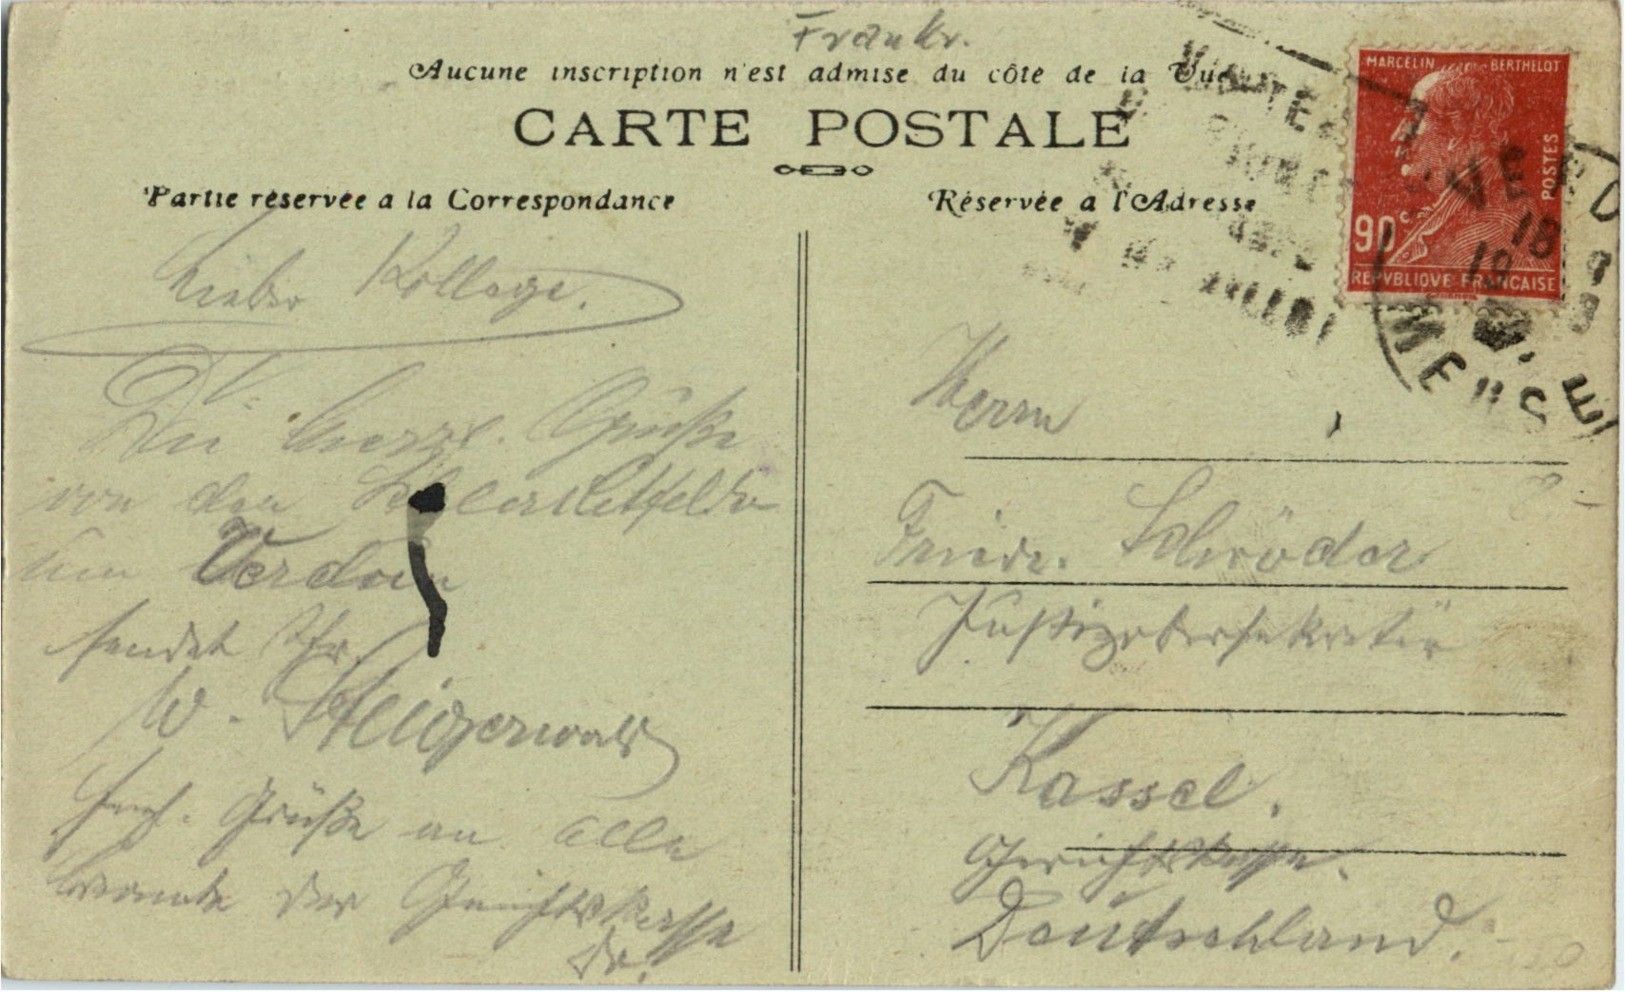 Frankr.
Aucune inscription n'est admise du côté de la Vue
CARTE POSTALE
Partie réservée a la Correspondance
Lieber Kollege.
Die herzl. Grüße
von den Schlachtfeldern
um Verdun
sendet Ihr
W. Steigerwald
Grüße an alle
Beamte der Gerichtskasse
Réservée a l'Adresse
MARCELIN BERTHELOT
POSTES
90c
REPVBLIQVE FRANCAISE
VERDUN
MEUSE
18
Herrn
Friedr. Schröder
Justizobersekretär
Kassel.
Gerichtskasse.
Deutschland.